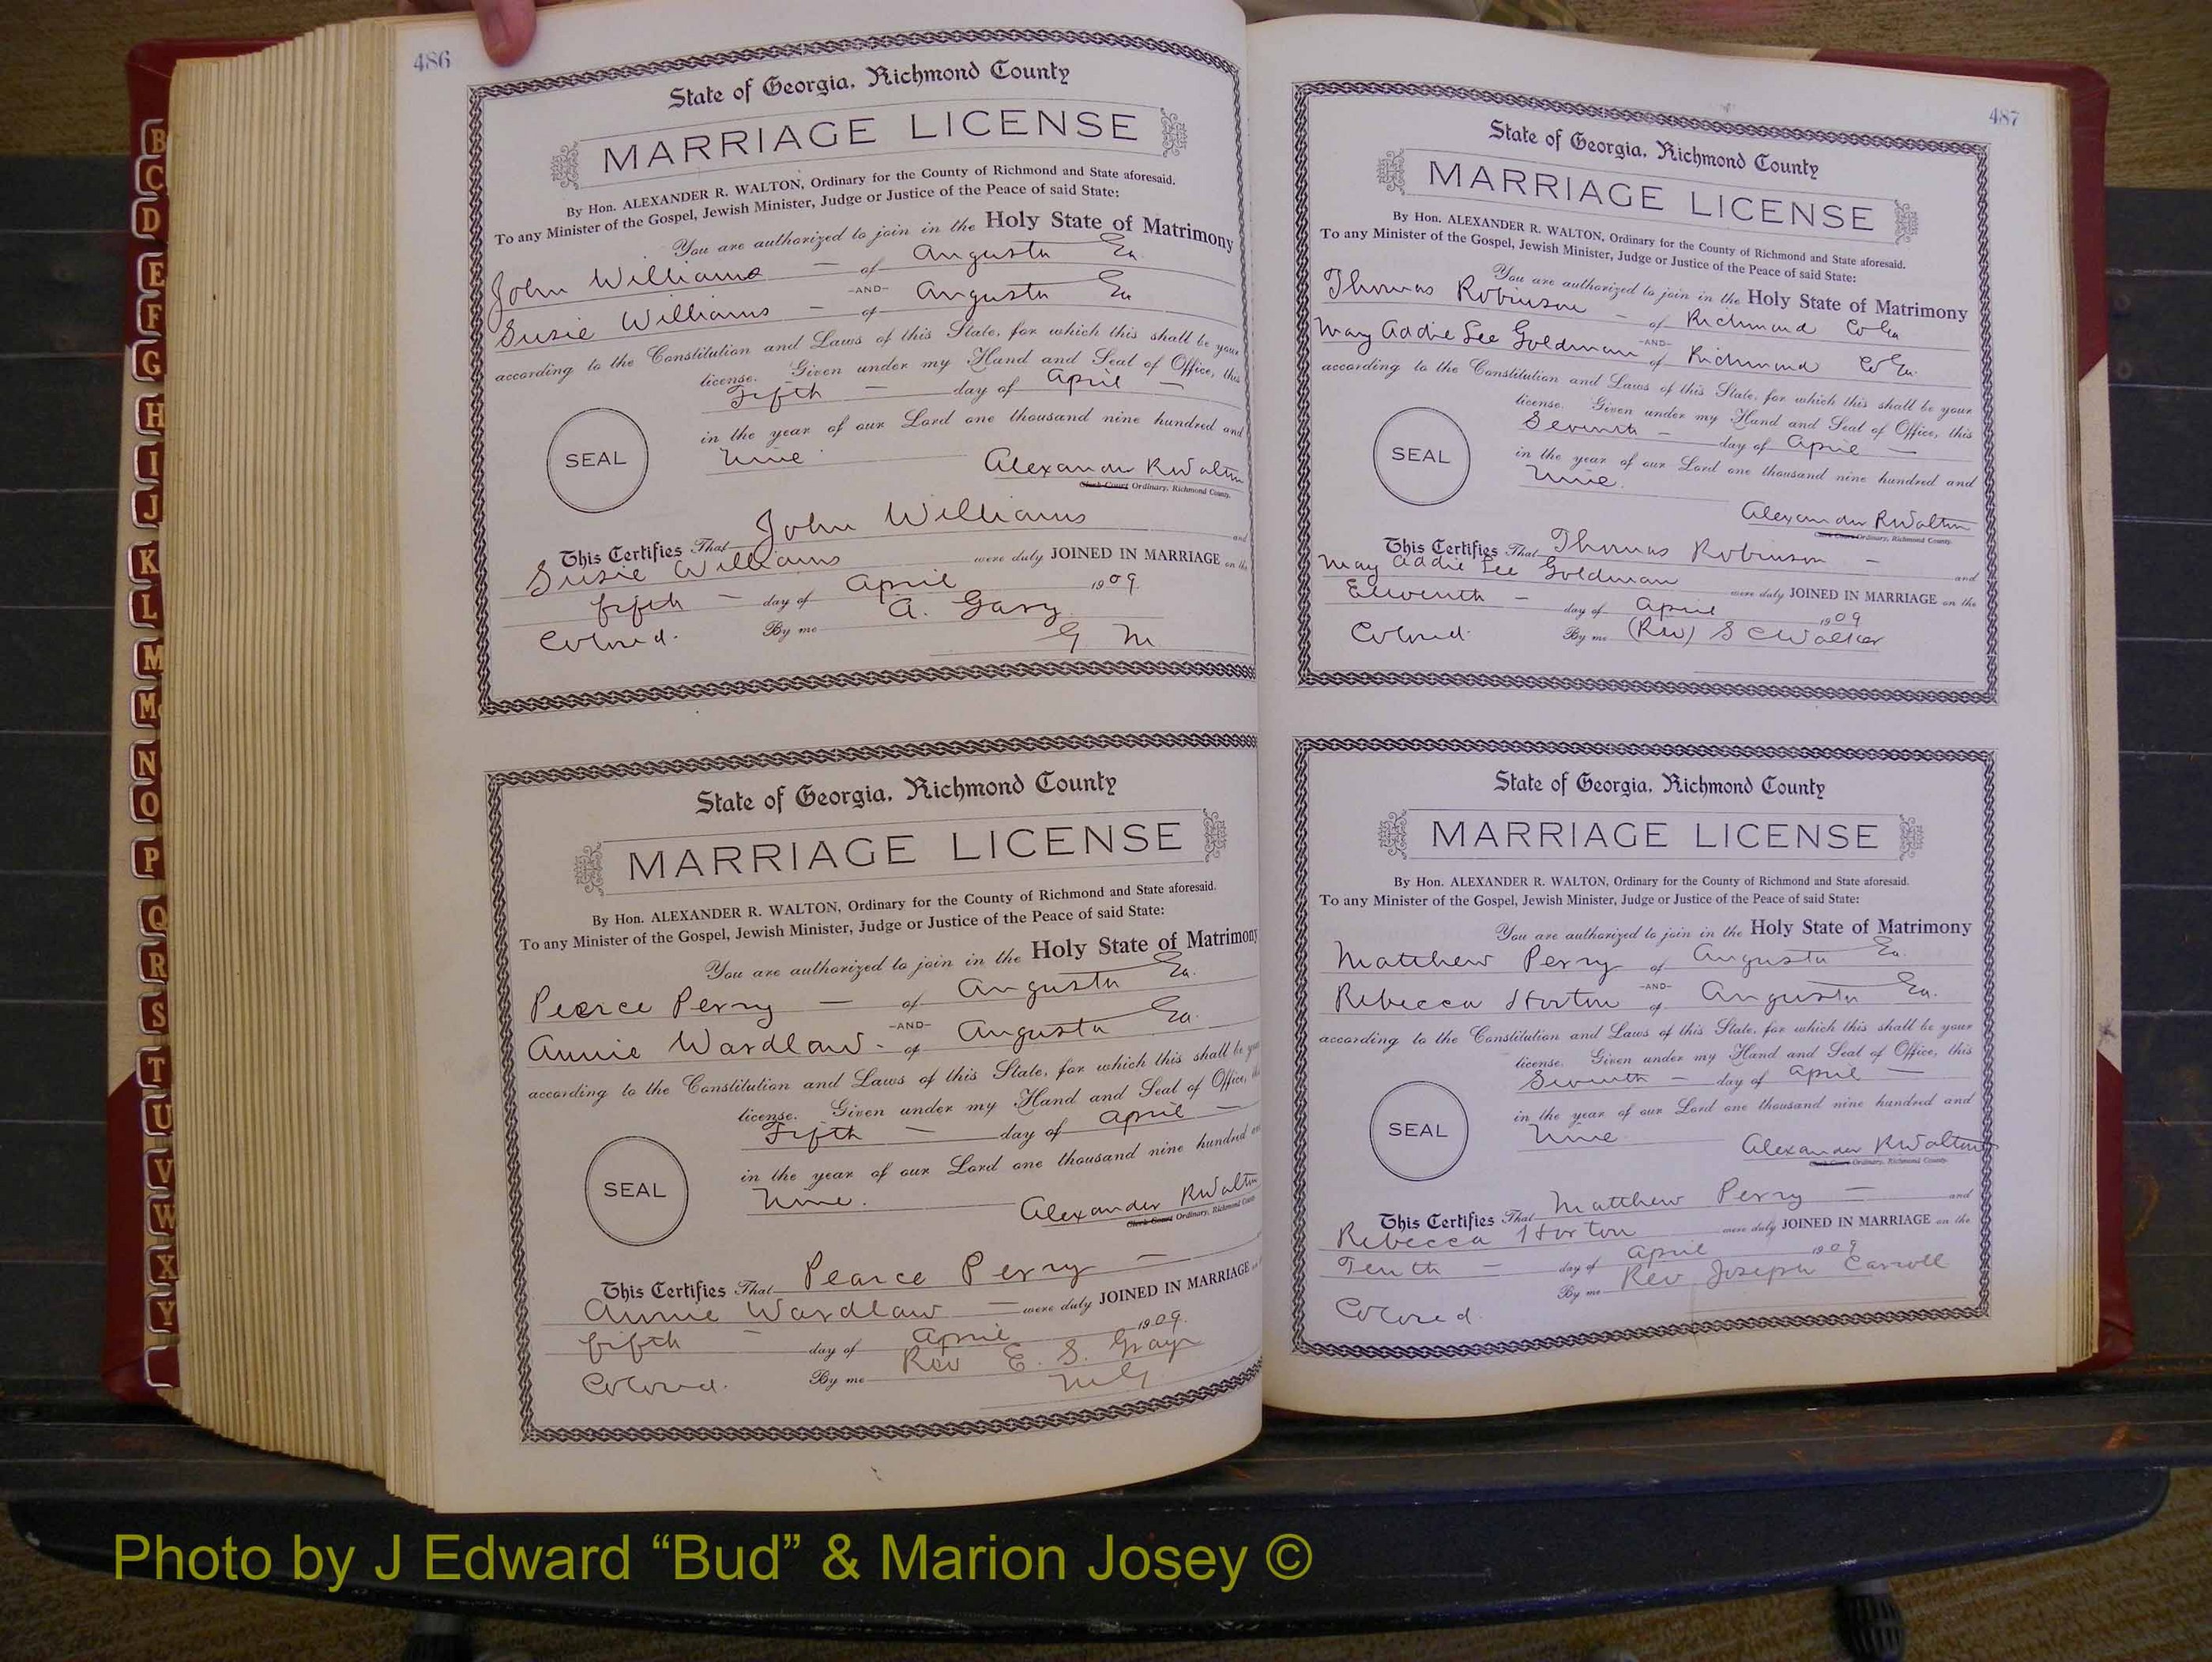 486
State of Georgia, Richmond County
MARRIAGE LICENSE
By Hon. ALEXANDER R. WALTON, Ordinary for the County of Richmond and State aforesaid.
To any Minister of the Gospel, Jewish Minister, Judge or Justice of the Peace of said State:
You are authorized to join in the Holy State of Matrimony
John Williams — of Augusta Ga
-AND-
Susie Williams — of Augusta Ga
according to the Constitution and Laws of this State, for which this shall be your
license. Given under my Hand and Seal of Office, this
Fifth — day of April —
in the year of our Lord one thousand nine hundred and
Nine
SEAL
Alexander R Walton
Clerk Court Ordinary, Richmond County.
This Certifies That John Williams and
Susie Williams were duly JOINED IN MARRIAGE on the
fifth — day of April 1909.
Colored. By me A. Gary
G M
State of Georgia, Richmond County
MARRIAGE LICENSE
By Hon. ALEXANDER R. WALTON, Ordinary for the County of Richmond and State aforesaid.
To any Minister of the Gospel, Jewish Minister, Judge or Justice of the Peace of said State:
You are authorized to join in the Holy State of Matrimony
Pearce Perry — of Augusta Ga.
-AND-
Annie Wardlaw - of Augusta Ga.
according to the Constitution and Laws of this State, for which this shall be your
license. Given under my Hand and Seal of Office,
Fifth — day of April —
in the year of our Lord one thousand nine hundred
Nine.
SEAL
Alexander R Walton
Clerk Court Ordinary, Richmond County
This Certifies That Pearce Perry —
Annie Wardlaw — were duly JOINED IN MARRIAGE
fifth — day of April 1909.
Colored. By me Rev E. S. Gray
M G
487
State of Georgia, Richmond County
MARRIAGE LICENSE
By Hon. ALEXANDER R. WALTON, Ordinary for the County of Richmond and State aforesaid.
To any Minister of the Gospel, Jewish Minister, Judge or Justice of the Peace of said State:
You are authorized to join in the Holy State of Matrimony
Thomas Robinson - of Richmond Co Ga
-AND-
May Addie Lee Goldman of Richmond Co Ga.
according to the Constitution and Laws of this State, for which this shall be your
license. Given under my Hand and Seal of Office, this
Seventh — day of April —
in the year of our Lord one thousand nine hundred and
Nine.
SEAL
Alexander R Walton
Clerk Court Ordinary, Richmond County.
This Certifies That Thomas Robinson — and
May Addie Lee Goldman were duly JOINED IN MARRIAGE on the
Eleventh — day of April 1909
Colored. By me (Rev) S C Walker
State of Georgia, Richmond County
MARRIAGE LICENSE
By Hon. ALEXANDER R. WALTON, Ordinary for the County of Richmond and State aforesaid.
To any Minister of the Gospel, Jewish Minister, Judge or Justice of the Peace of said State:
You are authorized to join in the Holy State of Matrimony
Matthew Perry of Augusta Ga.
-AND-
Rebecca Horton of Augusta Ga.
according to the Constitution and Laws of this State, for which this shall be your
license. Given under my Hand and Seal of Office, this
Seventh — day of April —
in the year of our Lord one thousand nine hundred and
Nine
SEAL
Alexander R Walton
Clerk Court Ordinary, Richmond County.
This Certifies That Matthew Perry — and
Rebecca Horton were duly JOINED IN MARRIAGE on the
Tenth — day of April 1909
By me Rev Joseph Carroll
Colored.
B
C
D
E
F
G
H
I
J
K
L
M
Mc
N
O
P
Q
R
S
T
U
V
W
X
Y
Photo by J Edward “Bud” & Marion Josey ©